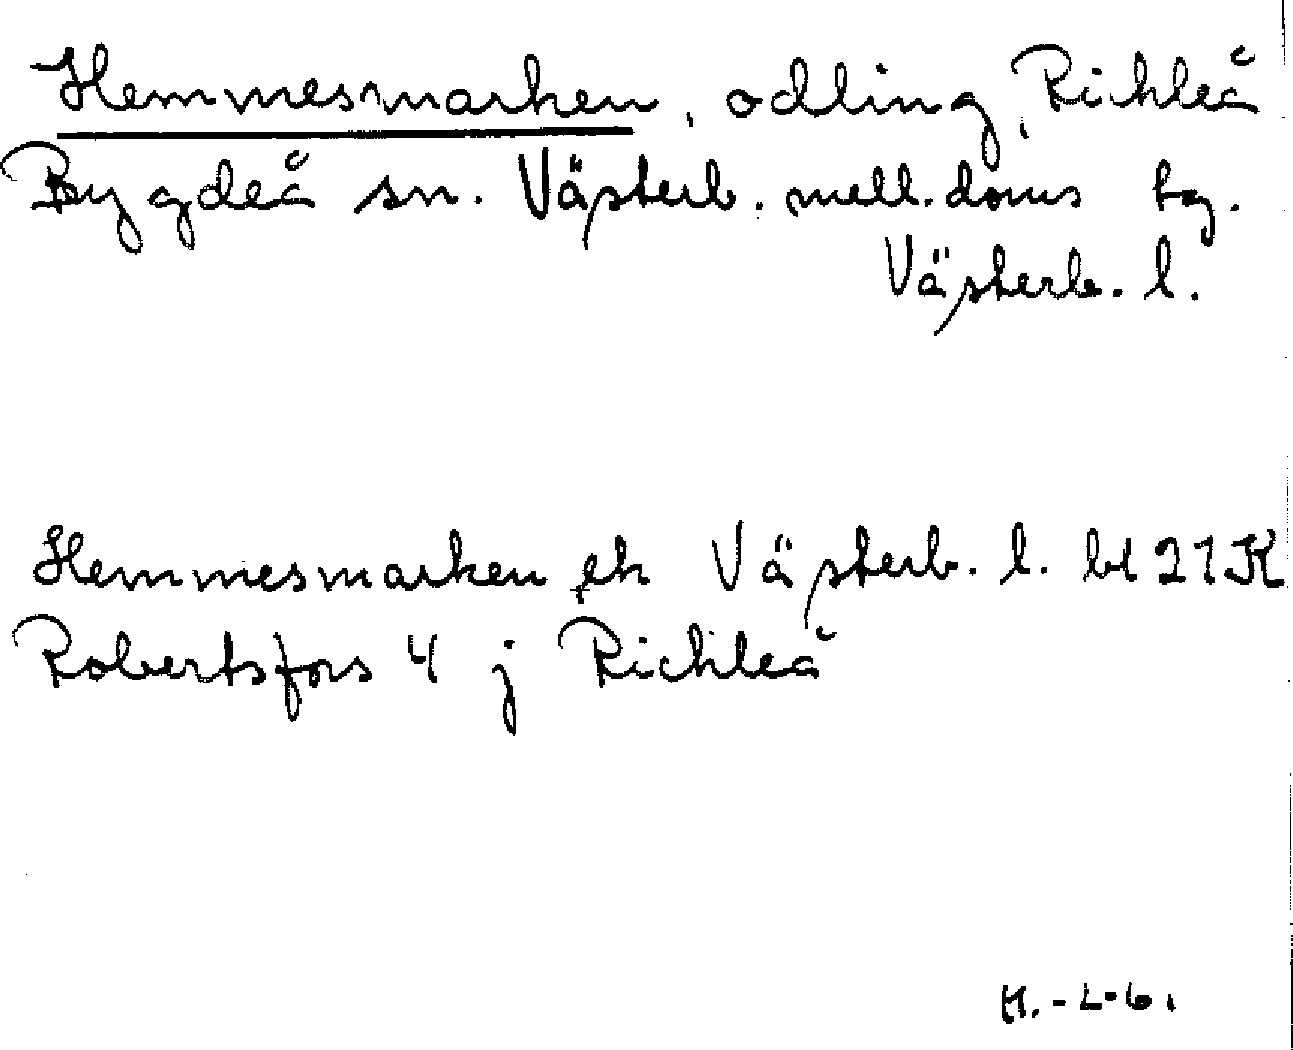 Hemmesmarken, odling, Rickleå
Bygdeå sn. Västerb. mell. doms tg.
Västerb. l.
Hemmesmarken ek Västerb. l. bl 21K
Robertsfors 4 j Rickleå